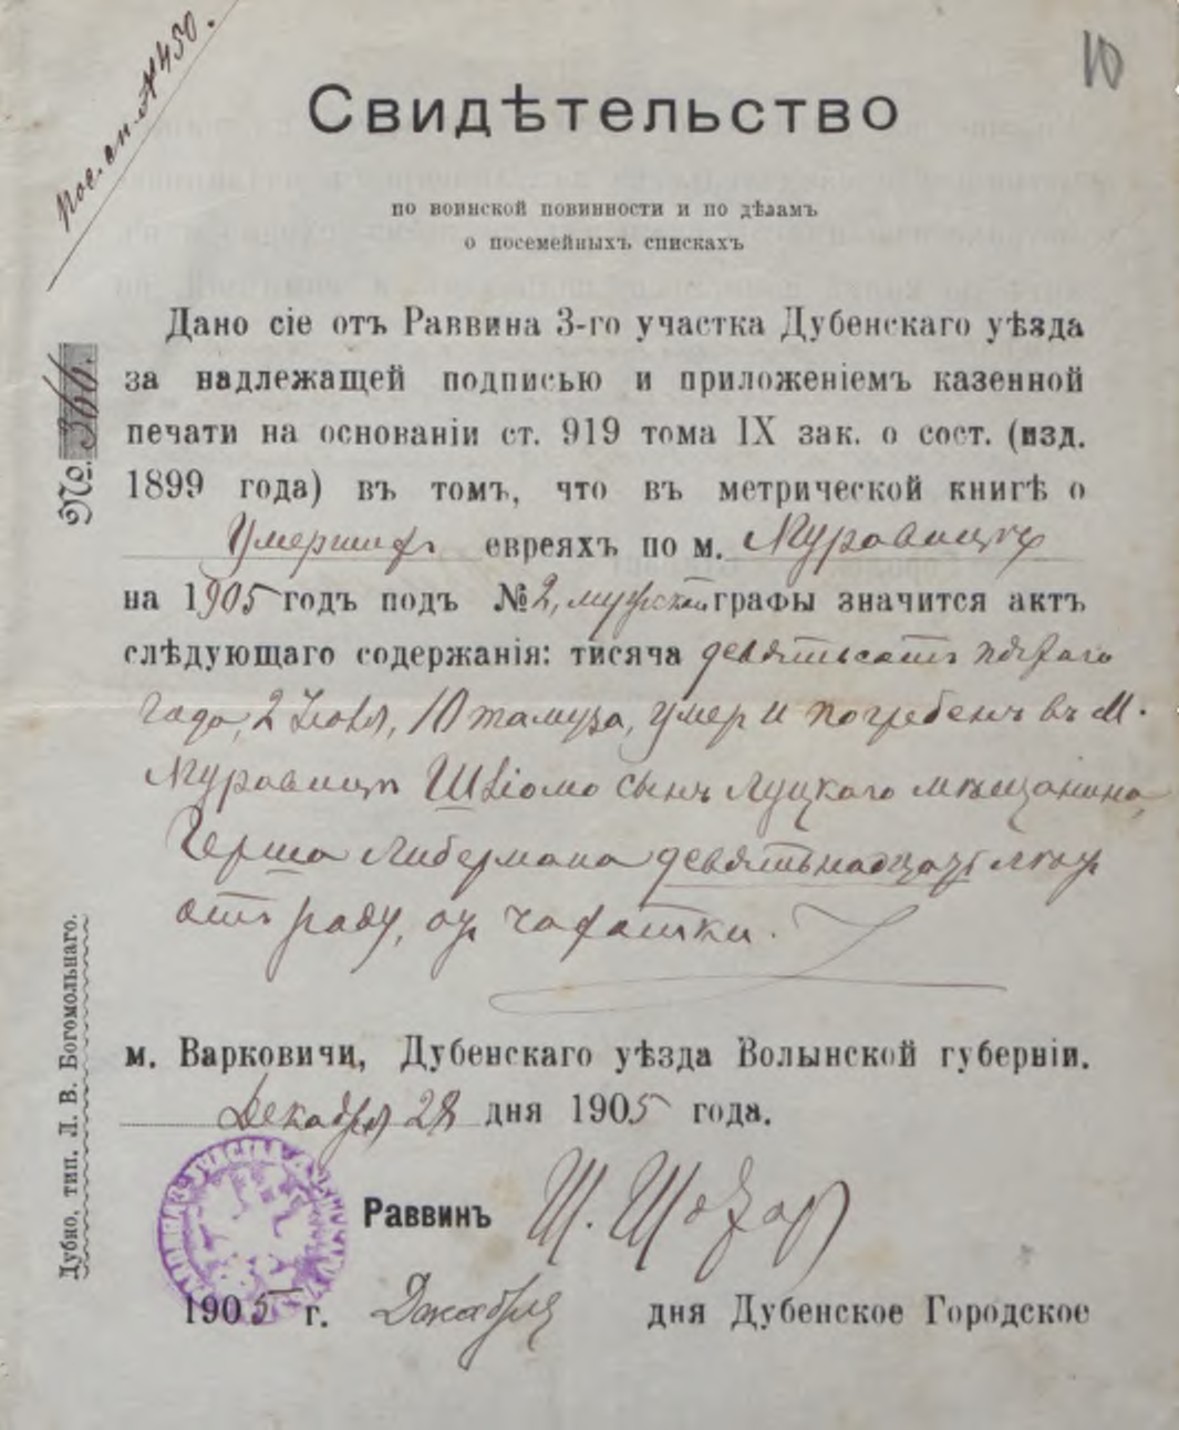 пос. сп. № 450.
10
Свидѣтельство
по воинской повинности и по дѣламъ
о посемейныхъ спискахъ
№. 366.
Дано сіе отъ Раввина 3-го участка Дубенскаго уѣзда
за надлежащей подписью и приложеніемъ казенной
печати на основаніи ст. 919 тома IX зак. о сост. (изд.
1899 года) въ томъ, что въ метрической книгѣ о
Умершихъ евреяхъ по м. Муравицѣ
на 1905 годъ подъ №2, мужской графы значится актъ
слѣдующаго содержанія: тисяча девятьсотъ пятаго
года, 2 Іюля, 10 тамуза, умер и погребенъ въ м.
Муравицѣ Шліомо сынъ Луцкаго мѣщанина,
Герша Либермана девятьнадцати лѣтъ
отъ роду, отъ чахотки.
м. Варковичи, Дубенскаго уѣзда Волынской губерніи.
Декабря 28 дня 1905 года.
Раввинъ Ш.
1905 г. Декабря дня Дубенское Городское
Дубно, тип. Л. В. Богомольнаго.